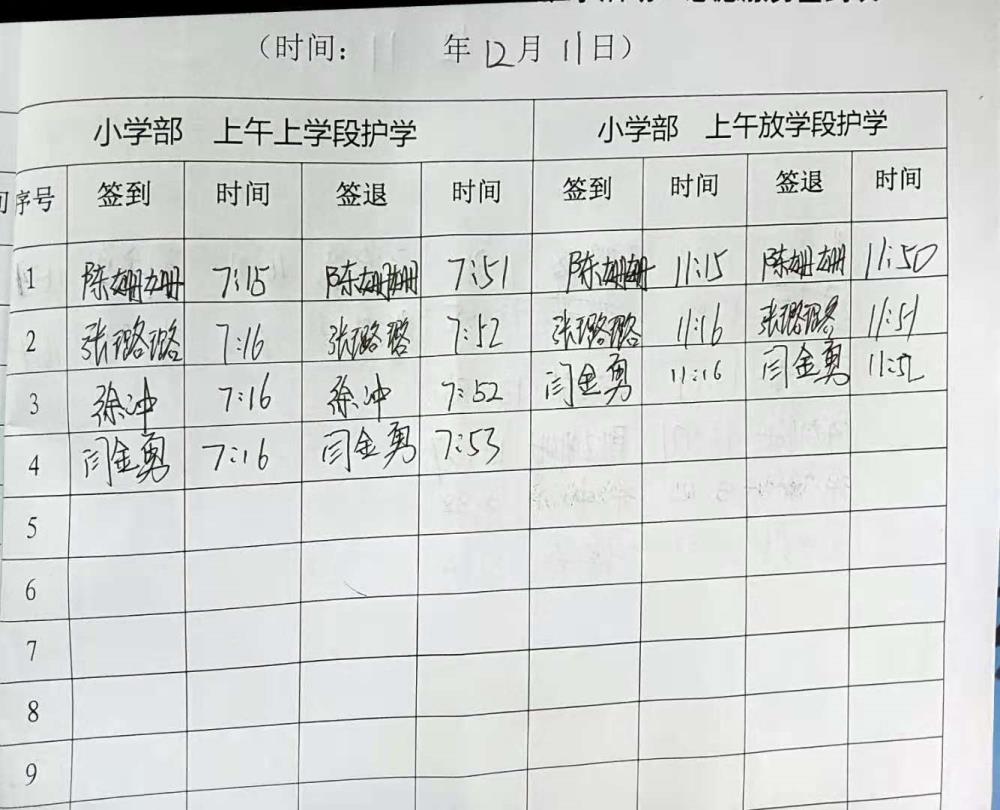 （时间： 年12月11日）
小学部 上午上学段护学 小学部 上午放学段护学
序号 签到 时间 签退 时间 签到 时间 签退 时间
1 陈姗姗 7:15 陈姗姗 7:51 陈姗姗 11:15 陈姗姗 11:50
2 张璐璐 7:16 张璐璐 7:52 张璐璐 11:16 张璐璐 11:51
3 徐冲 7:16 徐冲 7:52 闫金勇 11:16 闫金勇 11:52
4 闫金勇 7:16 闫金勇 7:53
5
6
7
8
9